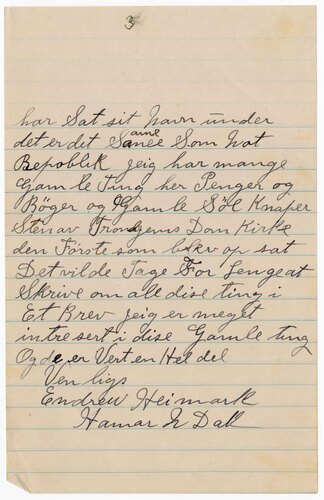 3
har Sat sit Navn under
det er det Same Som hot
Repoblik jeig har mange
Gamle Ting her Penger og
Böger og Gamle Söl Knaper
Sten av Trongens Dom Kirke
den Förste som blev op sat
Det vilde Tage For Lenge at
Skrive om all dise ting i
Et Brev jeig er meget
intresert i dise Gamle ting
Og de er Vert en Hel del
Venligs
Endrew Heimark
Hamar N Dak